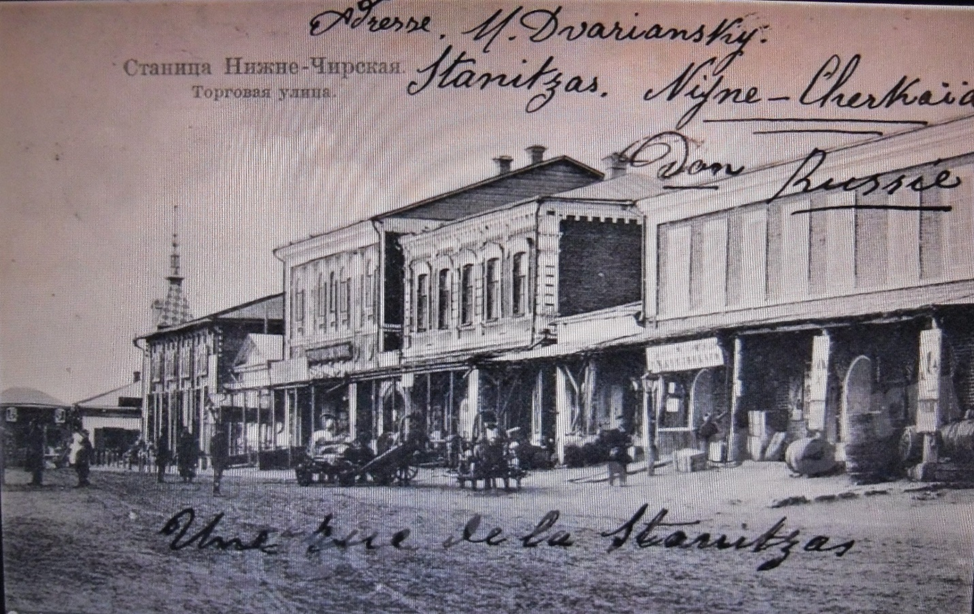 Adresse. M. Dvariansky.
Станица Нижне-Чирская.
Stanitzas. Nijne-Cherkaïa
Торговая улица.
Don Russie
Une rue de la Stanitzas